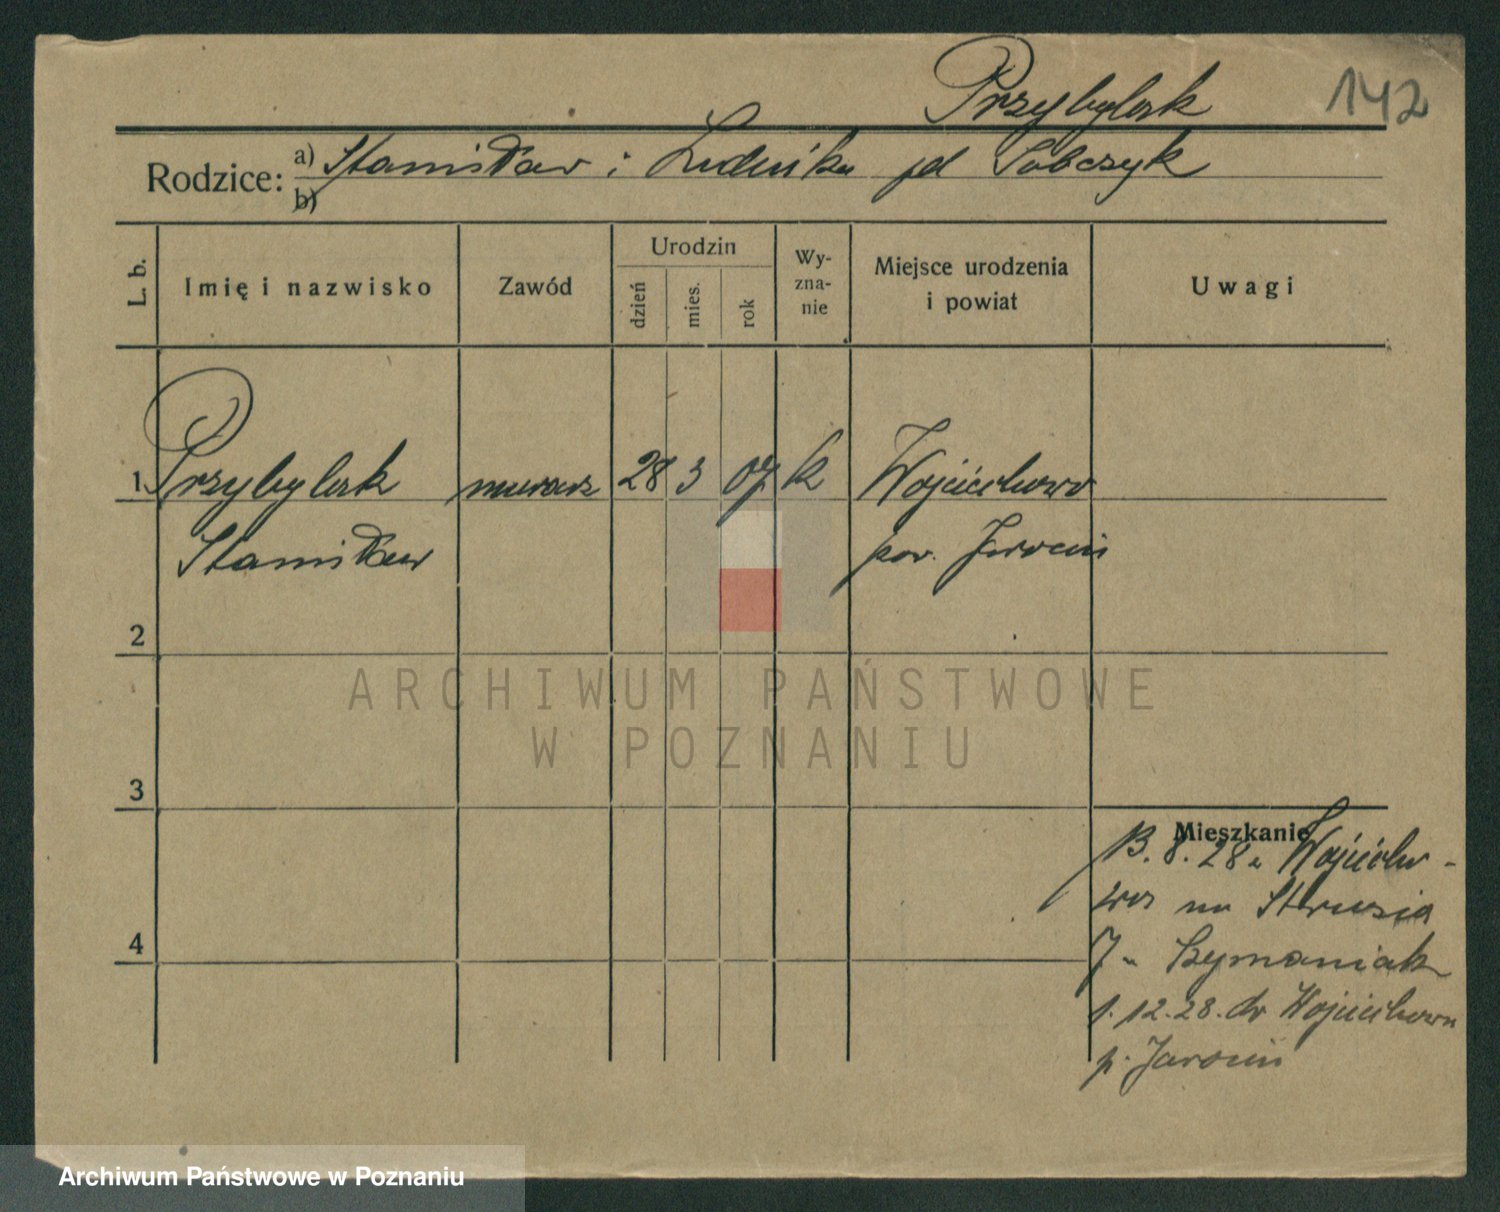 Przybylak 142
Rodzice: a) Stanisław i Ludwika zd Sobczyk
b)
L. b. Imię i nazwisko Zawód Urodzin dzień mies. rok Wyznanie Miejsce urodzenia i powiat Uwagi
1 Przybylak murarz 28 3 07 k Wojciechowo
Stanisław pow. Jarocin
2
ARCHIWUM PAŃSTWOWE
W POZNANIU
3
Mieszkanie
13. 8. 28 z Wojciecho-
wa na Strusia
4
7 u Szymaniak
1. 12. 28. do Wojciechowa
p. Jarocin
Archiwum Państwowe w Poznaniu